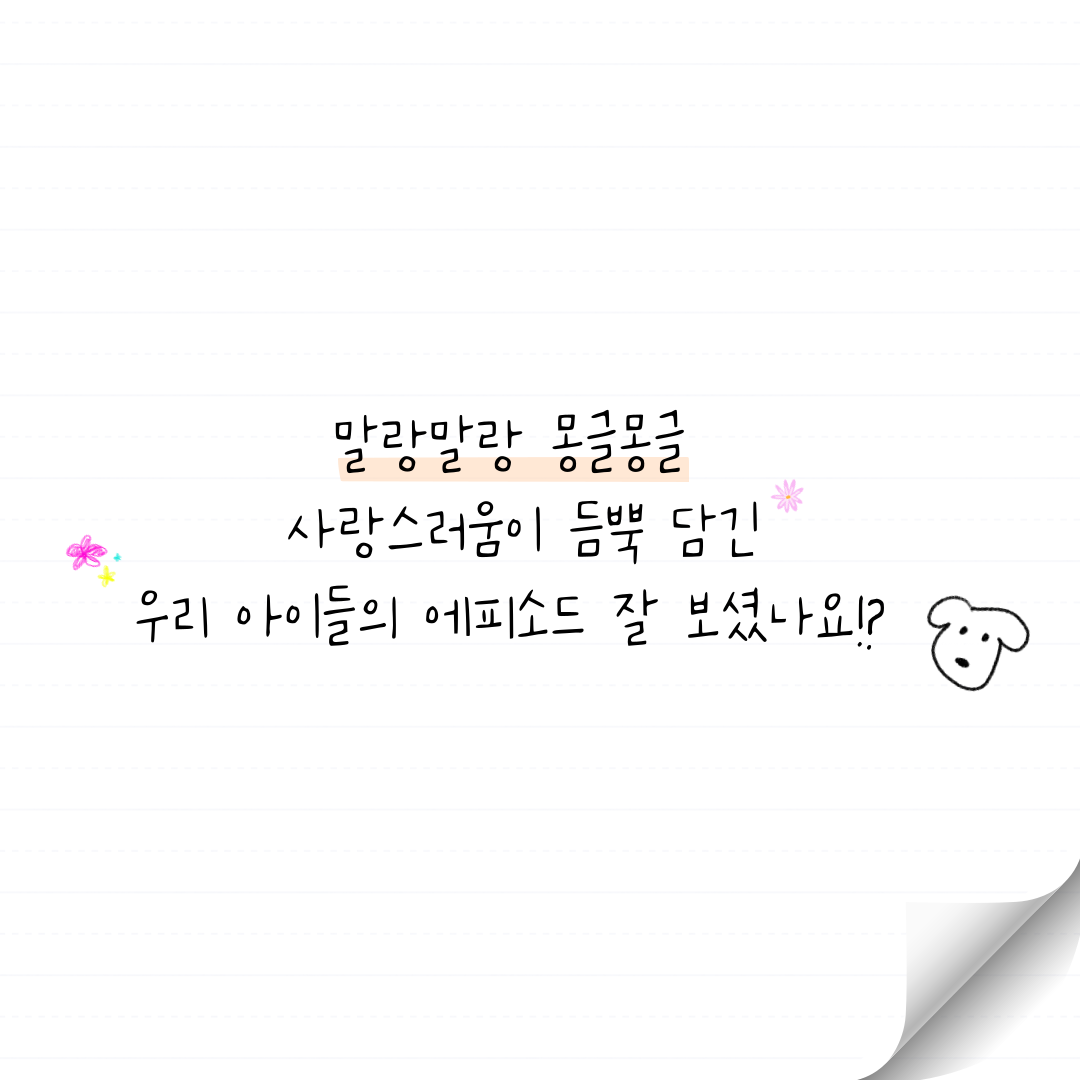 말랑말랑 몽글몽글
사랑스러움이 듬뿍 담긴
우리 아이들의 에피소드 잘 보셨나요!?